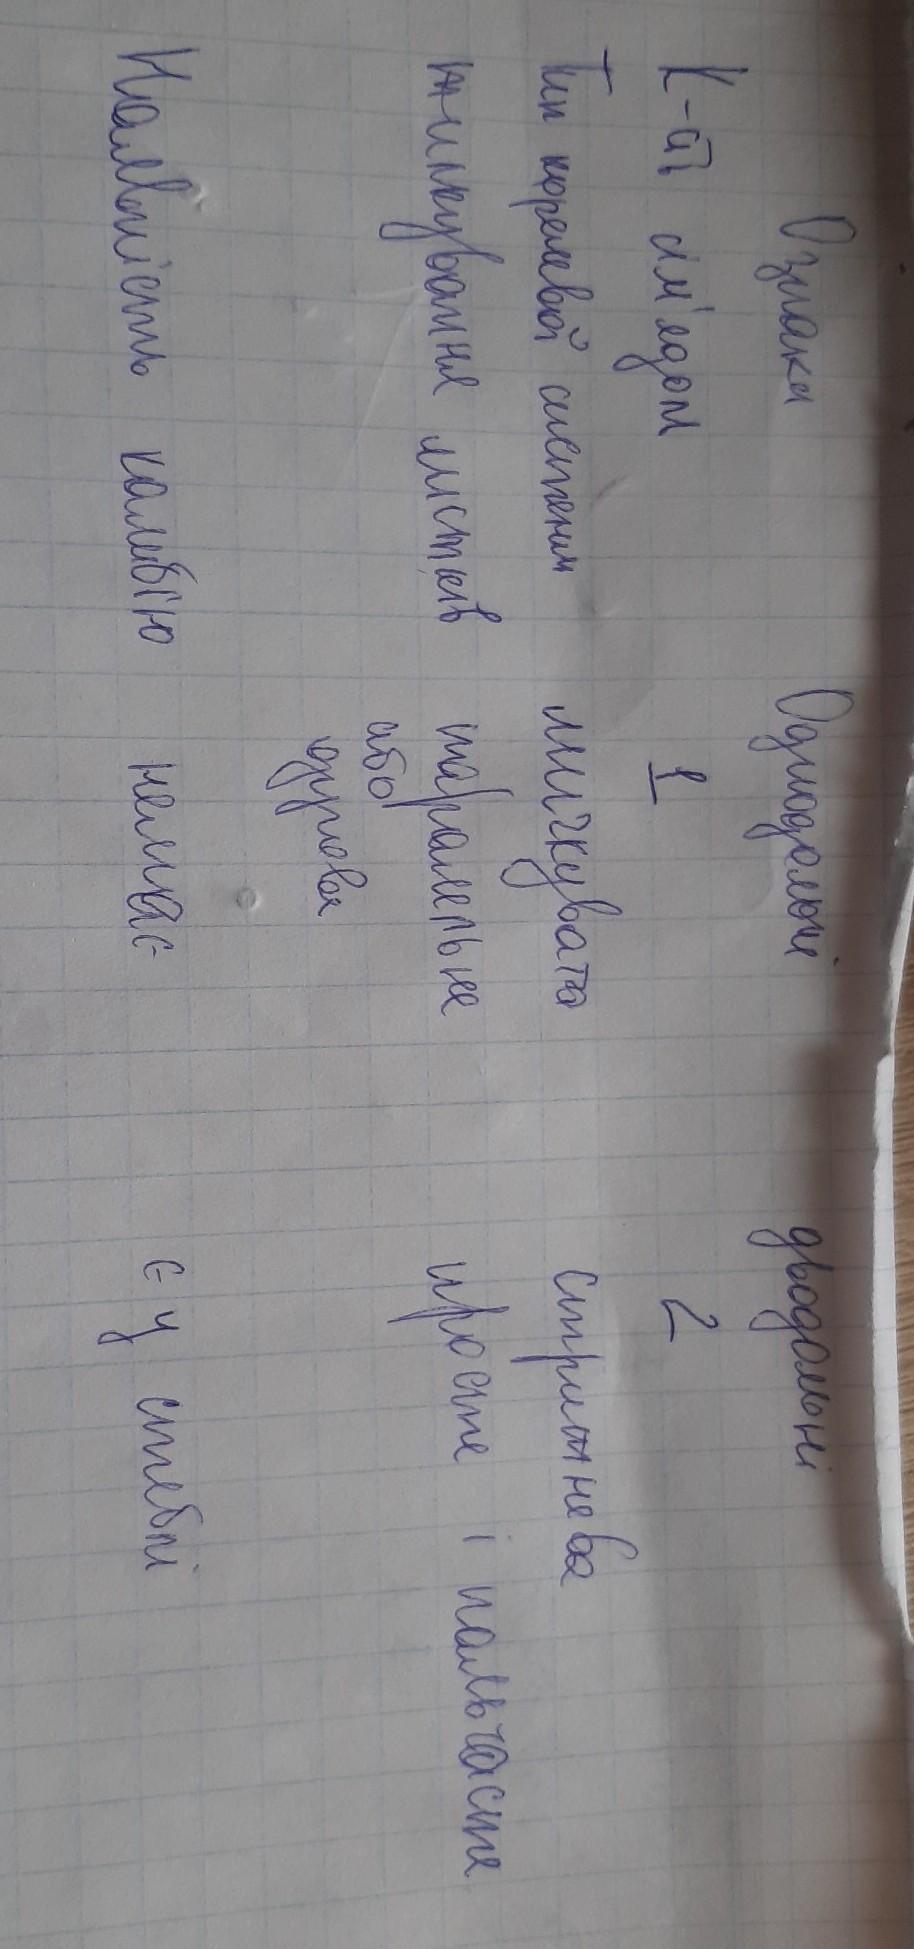 Ознаки Однодольні дводольні
К-сть сім'ядол 1 2
Тип кореневой системи мичкувата стрижнева
жилкування листків паралельне просте і пальчасте
або
дугове
Наявність камбію немає є у стеблі